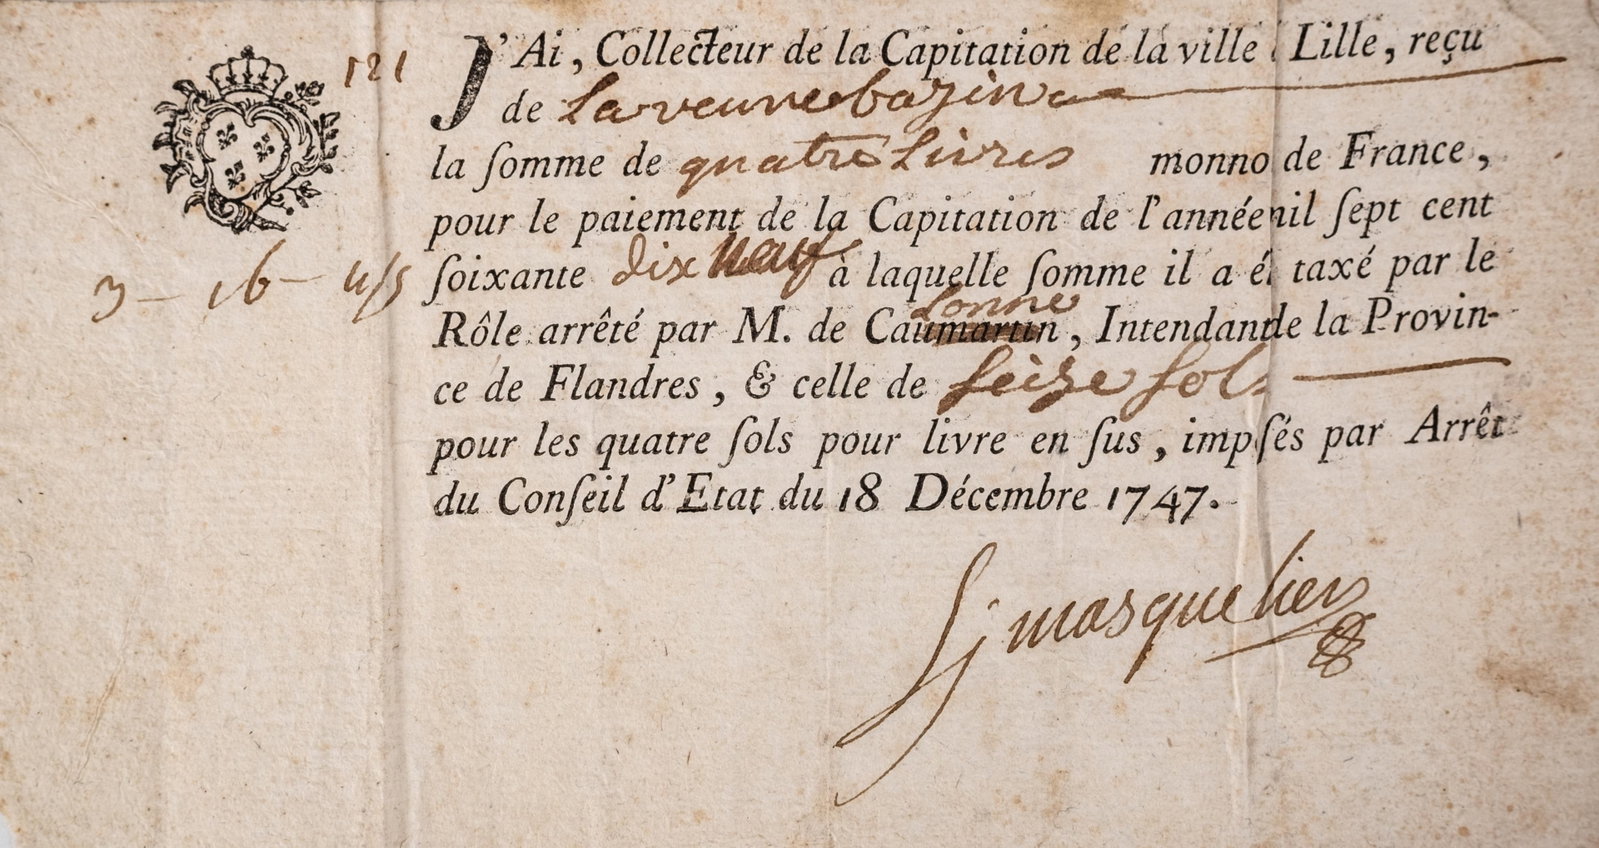 121
J'Ai, Collecteur de la Capitation de la ville Lille, reçu
de La veuve bazin
la ſomme de quatre Livres monno de France,
pour le paiement de la Capitation de l'annéenil ſept cent
ſoixante dix neuf à laquelle ſomme il a é taxé par le
3 - 16 -
Lonne
Rôle arrêté par M. de Caumartin, Intendande la Provin-
ce de Flandres, & celle de ſeize ſols
pour les quatre ſols pour livre en ſus, impſés par Arrêt
du Conſeil d'Etat du 18 Décembre 1747.
masquelier